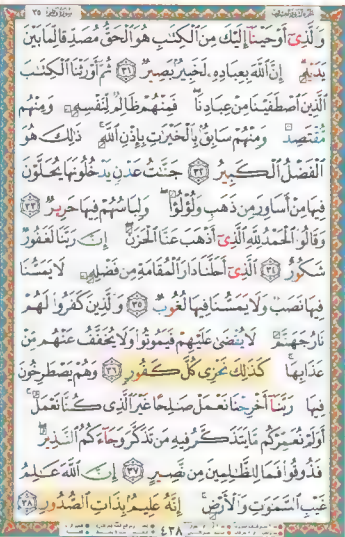 وَالَّذِي أَوْحَيْنَا إِلَيْكَ مِنَ الْكِتَابِ هُوَ الْحَقُّ مُصَدِّقًا لِمَا بَيْنَ
يَدَيْهِ إِنَّ اللَّهَ بِعِبَادِهِ لَخَبِيرٌ بَصِيرٌ ٣١ ثُمَّ أَوْرَثْنَا الْكِتَابَ
الَّذِينَ اصْطَفَيْنَا مِنْ عِبَادِنَا فَمِنْهُمْ ظَالِمٌ لِنَفْسِهِ وَمِنْهُمْ
مُقْتَصِدٌ وَمِنْهُمْ سَابِقٌ بِالْخَيْرَاتِ بِإِذْنِ اللَّهِ ذَٰلِكَ هُوَ
الْفَضْلُ الْكَبِيرُ ٣٢ جَنَّاتُ عَدْنٍ يَدْخُلُونَهَا يُحَلَّوْنَ
فِيهَا مِنْ أَسَاوِرَ مِنْ ذَهَبٍ وَلُؤْلُؤًا وَلِبَاسُهُمْ فِيهَا حَرِيرٌ ٣٣
وَقَالُوا الْحَمْدُ لِلَّهِ الَّذِي أَذْهَبَ عَنَّا الْحَزَنَ إِنَّ رَبَّنَا لَغَفُورٌ
شَكُورٌ ٣٤ الَّذِي أَحَلَّنَا دَارَ الْمُقَامَةِ مِنْ فَضْلِهِ لَا يَمَسُّنَا
فِيهَا نَصَبٌ وَلَا يَمَسُّنَا فِيهَا لُغُوبٌ ٣٥ وَالَّذِينَ كَفَرُوا لَهُمْ
نَارُ جَهَنَّمَ لَا يُقْضَىٰ عَلَيْهِمْ فَيَمُوتُوا وَلَا يُخَفَّفُ عَنْهُمْ مِنْ
عَذَابِهَا كَذَٰلِكَ نَجْزِي كُلَّ كَفُورٍ ٣٦ وَهُمْ يَصْطَرِخُونَ
فِيهَا رَبَّنَا أَخْرِجْنَا نَعْمَلْ صَالِحًا غَيْرَ الَّذِي كُنَّا نَعْمَلُ
أَوَلَمْ نُعَمِّرْكُمْ مَا يَتَذَكَّرُ فِيهِ مَنْ تَذَكَّرَ وَجَاءَكُمُ النَّذِيرُ
فَذُوقُوا فَمَا لِلظَّالِمِينَ مِنْ نَصِيرٍ ٣٧ إِنَّ اللَّهَ عَالِمُ
غَيْبِ السَّمَاوَاتِ وَالْأَرْضِ إِنَّهُ عَلِيمٌ بِذَاتِ الصُّدُورِ ٣٨
٤٣٨